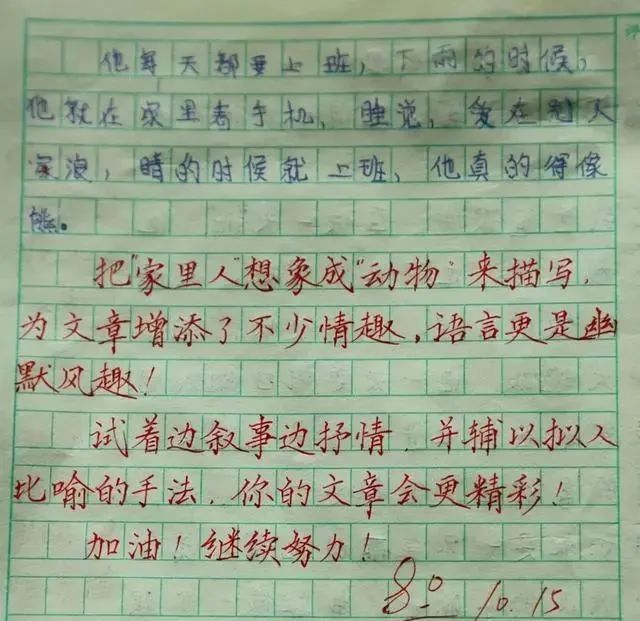 他每天都要上班，下雨的时候，
他就在家里看手机，睡觉，爱在
家浪，晴的时候就上班，他真的得像
熊。
把“家里人”想象成“动物”来描写，
为文章增添了不少情趣，语言更是幽
默风趣！
试着边叙事边抒情，并辅以拟人
比喻的手法，你的文章会更精彩！
加油！继续努力！
80 10.15